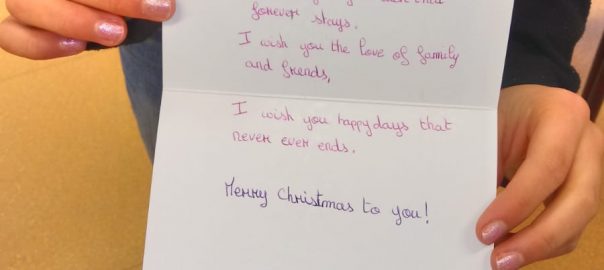 forever stays.
I wish you the love of family
and friends,
I wish you happy days that
never ever ends.
Merry Christmas to you!